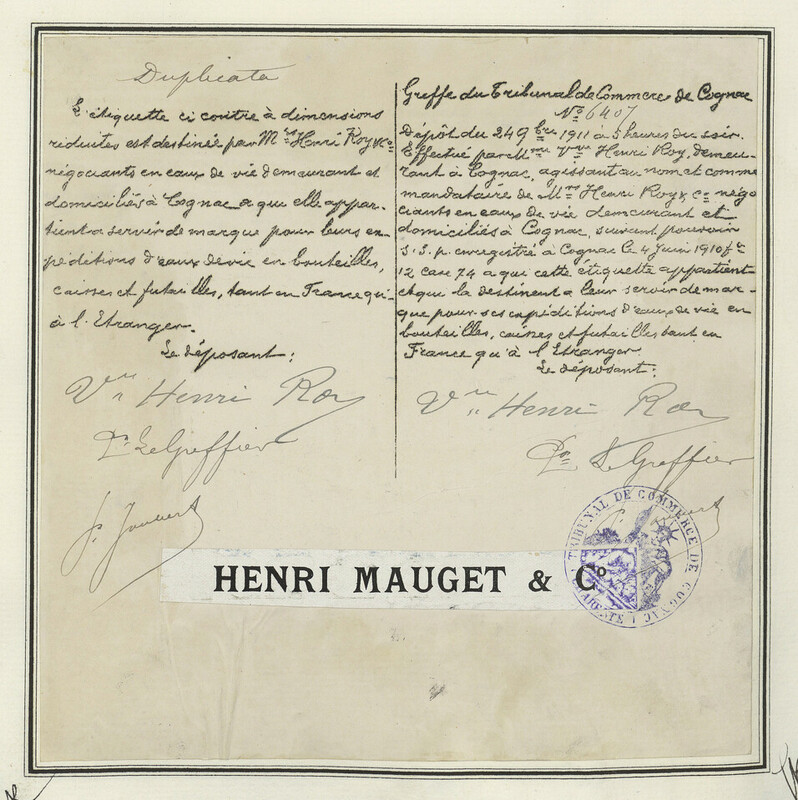 Duplicata
L'étiquette ci contre à dimensions
réduites est destinée par Mrs Henri Roy & Co
négociants en eaux de vie demeurant et
domiciliés à Cognac a que elle appar-
tient a servir de marque pour leurs ex-
péditions d'eaux de vie en bouteilles,
caisses et futailles, tant en France qu'
à l'Etranger.
Le déposant:
Vve Henri Roy
Pr Le Greffier
P. Joubert
Greffe du Tribunal de Commerce de Cognac
No 6407
Dépôt du 24 9bre 1911 à 5 heures du soir.
Effectué par Mme Vve Henri Roy, demeu-
rant à Cognac, agissant au nom et comme
mandataire de Mrs Henri Roy & Co négo
ciants en eaux de vie demeurant et
domiciliés à Cognac, suivant pouvoir
s. s. p. enregistré à Cognac le 4 Juin 1910 fo
12 case 74 a qui cette étiquette appartient
et qui la destinent a leur servir de mar-
que pour ses expéditions d'eaux de vie en
bouteilles, caisses et futailles tant en
France qu'à l'Etranger.
Le déposant:
Vve Henri Roy
Pr Le Greffier
HENRI MAUGET & Co
TRIBUNAL DE COMMERCE DE COGNAC
CHARENTE